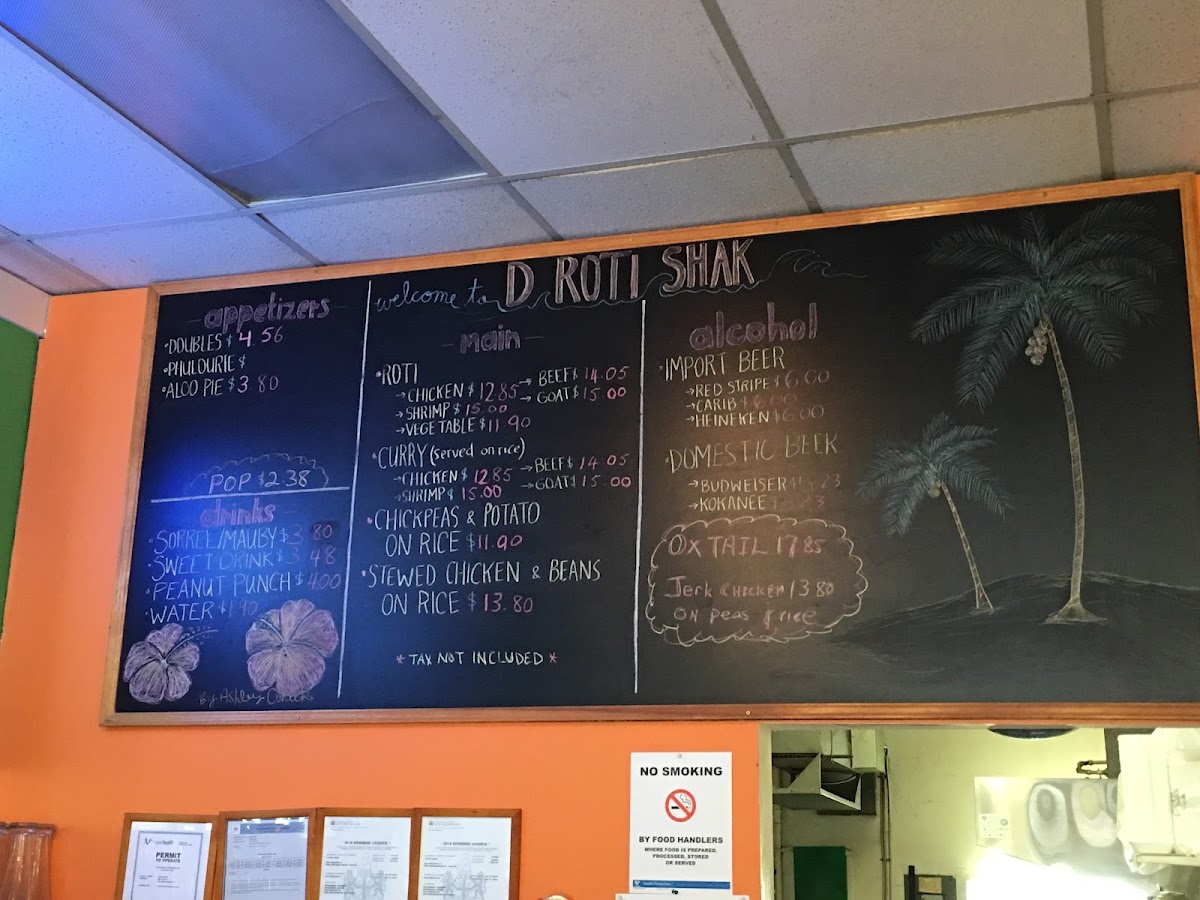 welcome to D ROTI SHAK
appetizers
•DOUBLES $4 56
•PHULOURIE $
•ALOO PIE $3 80
POP $2.38
drinks
•SORREL/MAUBY $3 80
•SWEET DRINK $3 48
•PEANUT PUNCH $4.00
•WATER $1 90
By Ashley
main
•ROTI
→CHICKEN $12.85 →BEEF $14.05
→SHRIMP $15.00 →GOAT $15.00
→VEGETABLE $11.90
•CURRY (served on rice)
→CHICKEN $12.85 →BEEF $14.05
→SHRIMP $15.00 →GOAT $15.00
•CHICKPEAS & POTATO
ON RICE $11.90
•STEWED CHICKEN & BEANS
ON RICE $13.80
*TAX NOT INCLUDED*
alcohol
•IMPORT BEER
→RED STRIPE $6.00
→CARIB $6.00
→HEINEKEN $6.00
•DOMESTIC BEER
→BUDWEISER
→KOKANEE
OXTAIL 17 85
Jerk CHICKEN 13 80
ON Peas & rice
NO SMOKING
BY FOOD HANDLERS
WHERE FOOD IS PREPARED,
PROCESSED, STORED
OR SERVED
PERMIT
TO OPERATE